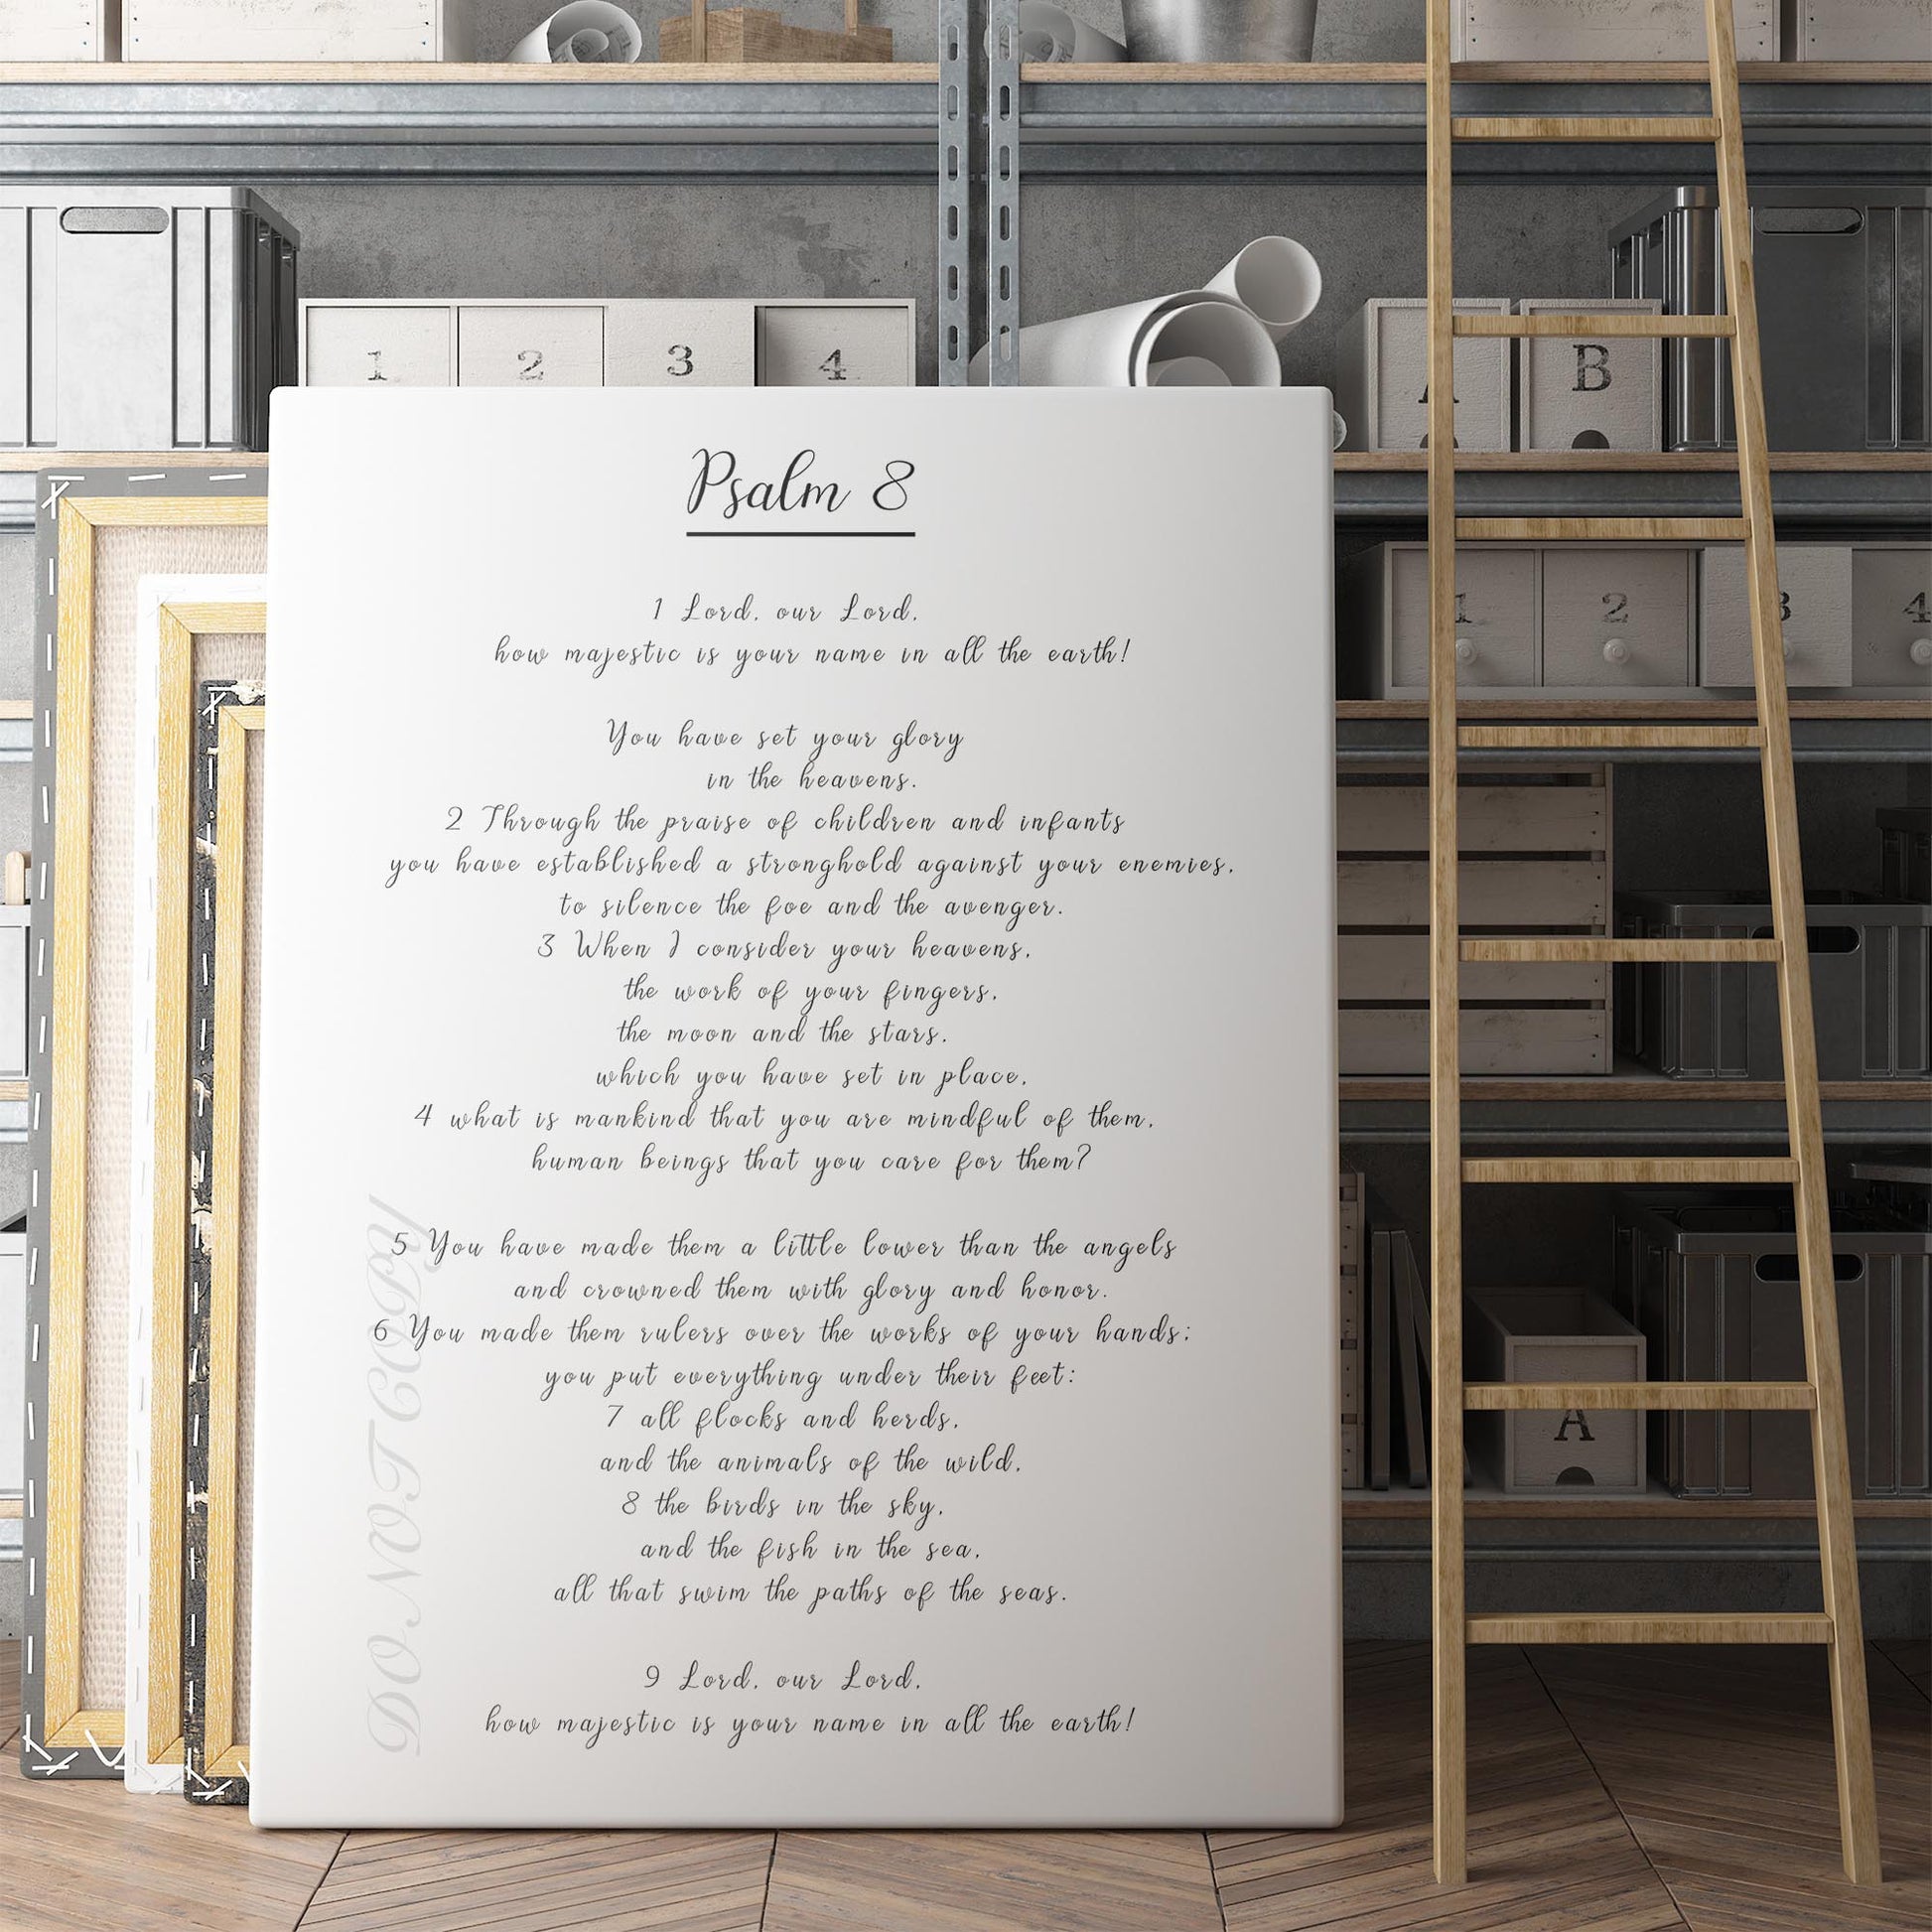 1 2 3 4
A B
Psalm 8
1 2 3 4
1 Lord, our Lord,
how majestic is your name in all the earth!
You have set your glory
in the heavens.
2 Through the praise of children and infants
you have established a stronghold against your enemies,
to silence the foe and the avenger.
3 When I consider your heavens,
the work of your fingers,
the moon and the stars,
which you have set in place,
4 what is mankind that you are mindful of them,
human beings that you care for them?
5 You have made them a little lower than the angels
and crowned them with glory and honor.
6 You made them rulers over the works of your hands;
you put everything under their feet:
7 all flocks and herds,
and the animals of the wild,
8 the birds in the sky,
and the fish in the sea,
all that swim the paths of the seas.
9 Lord, our Lord,
how majestic is your name in all the earth!
DO NOT COPY
A